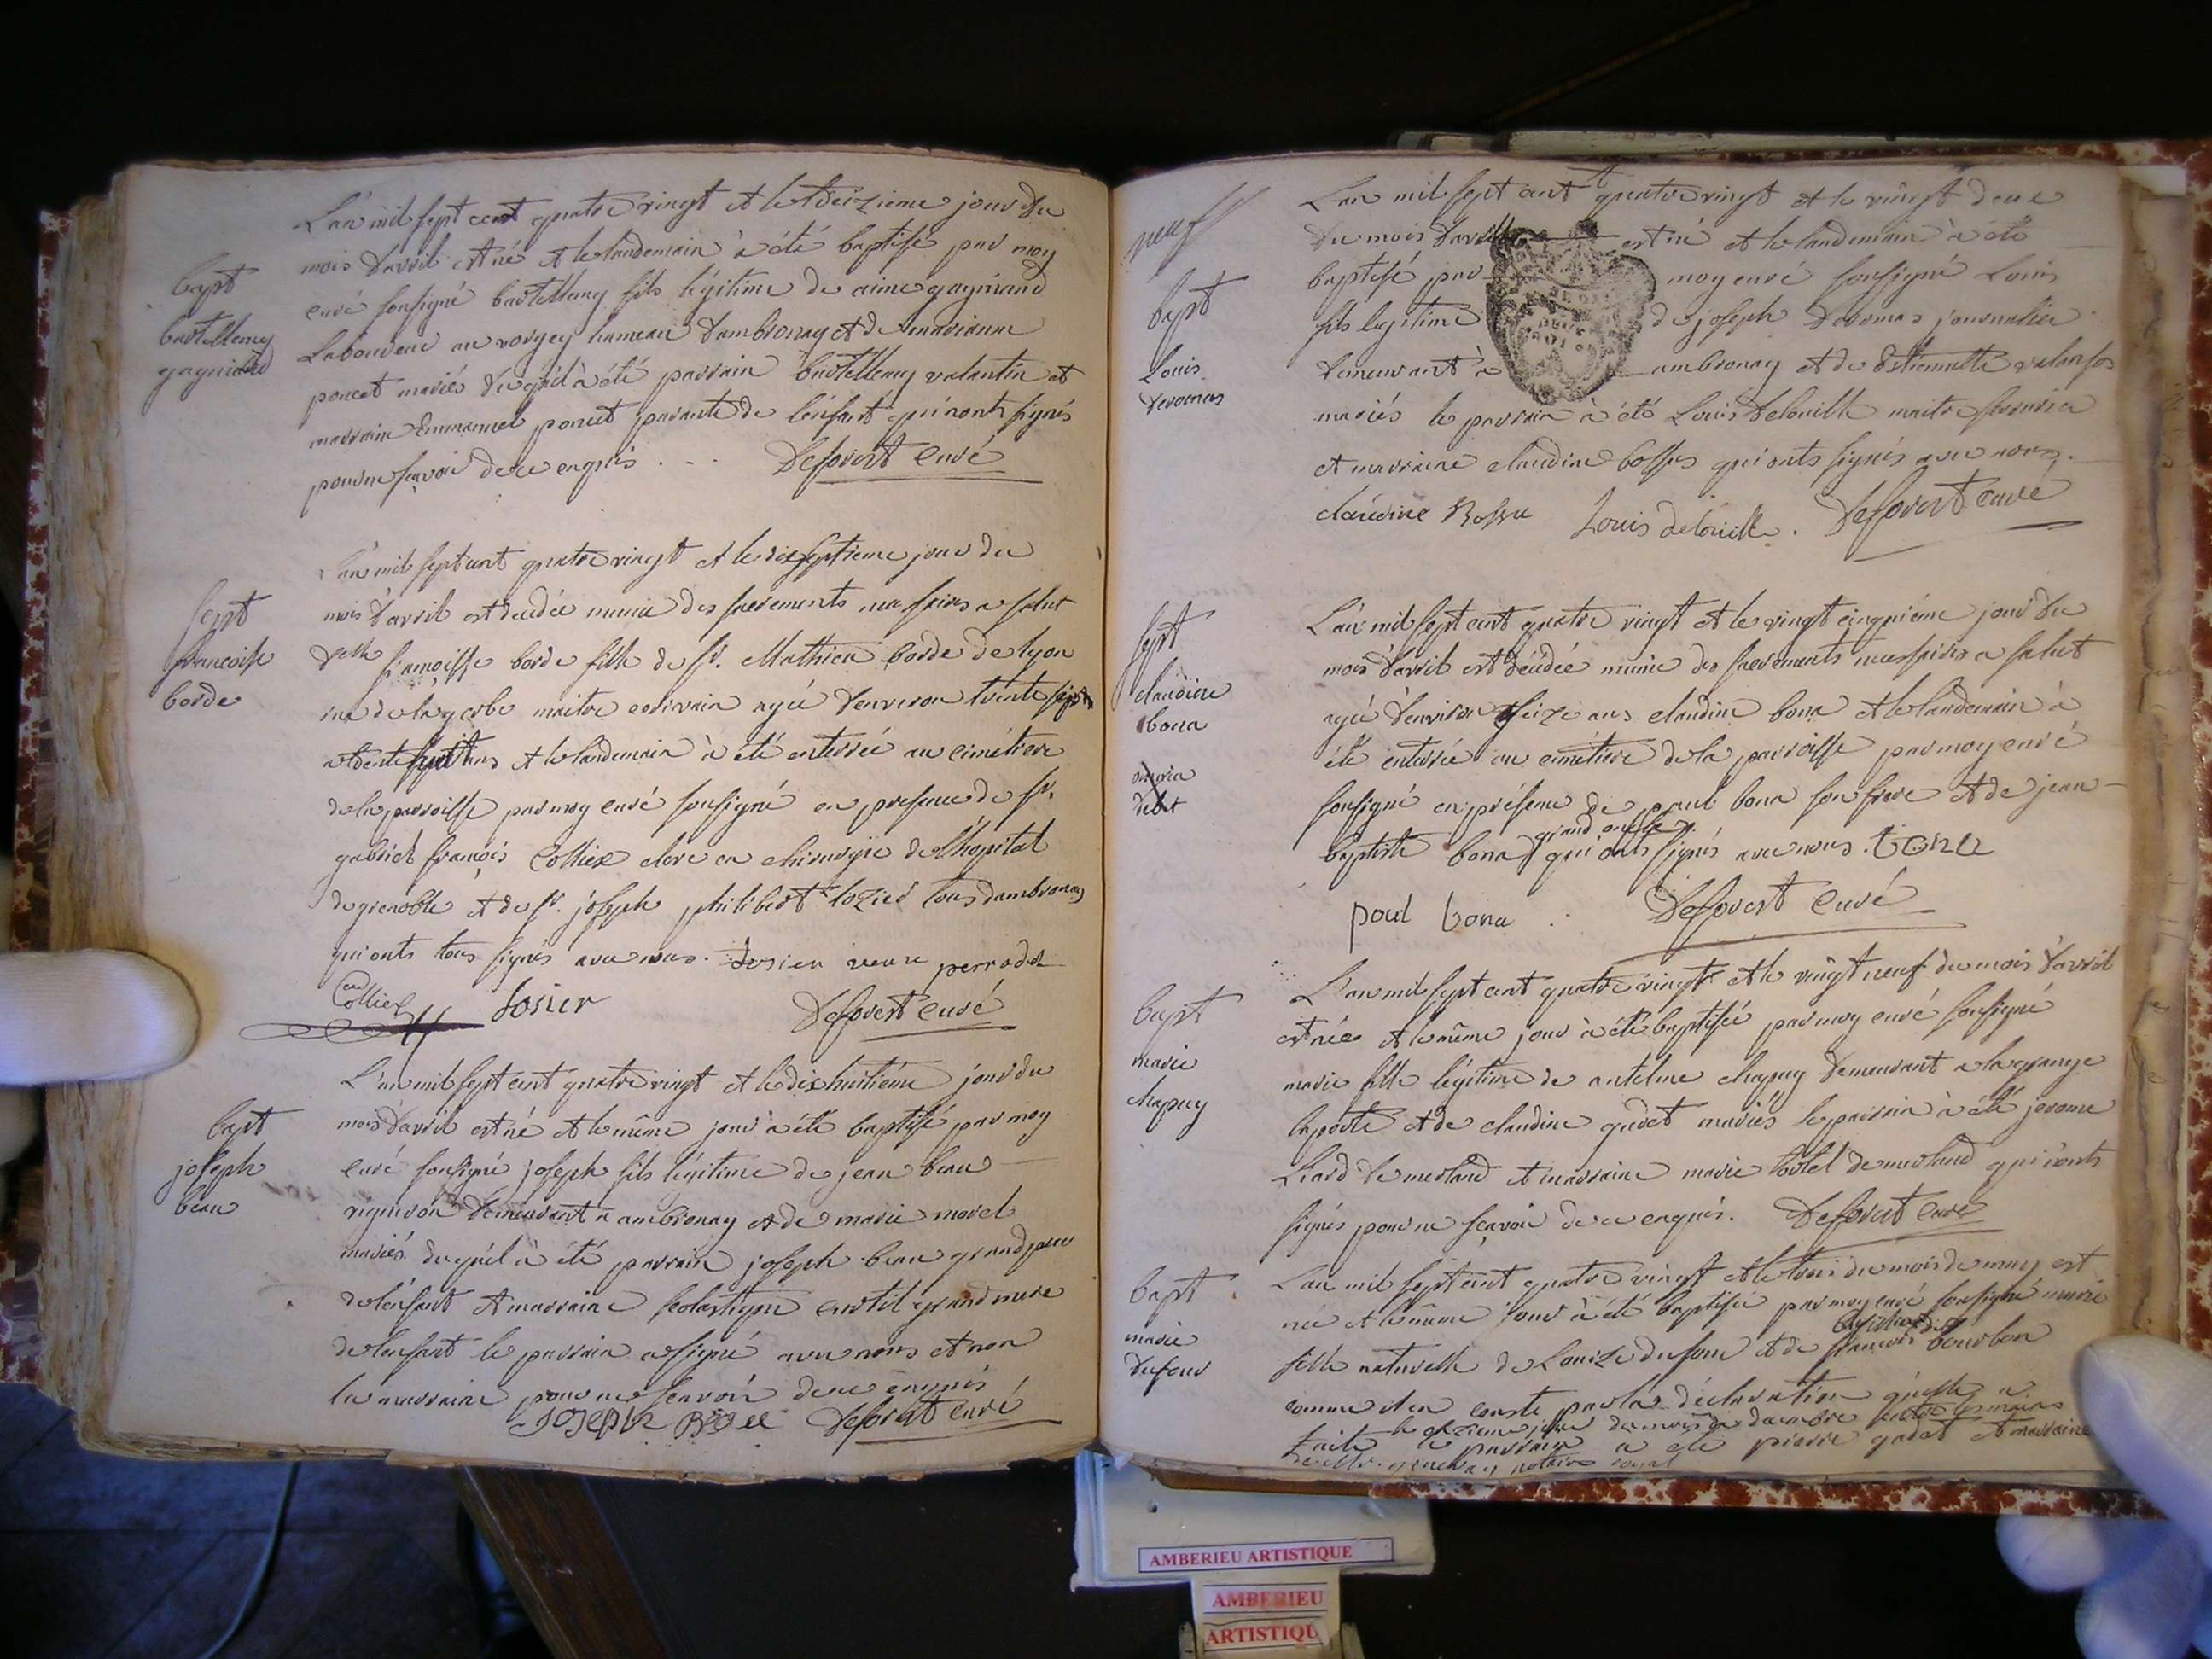 L'an mil sept cent quatre vingt et le treizieme jour du
mois d'avril est né et le landemain à été baptisé par moy
bapt
curé sousigné bartellemy fils légitime de aime gagniard
bartellemy
Laboureur au vorgey hameau d'ambronay et de marianne
gagniard
poncet mariés du quel à été parrain bartellemy valantin et
marraine Emmanuel poncet parante de l'enfant qui n'onts signés
pour ne sçavoir de ce enquis . - - Deforest curé
L'an mil sept cent quatre vingt et le dix septieme jour du
sept
mois d'avril est décédée munie des sacrements necessaires a salut
francoise
françoisse borde fille de sr. Mathieu borde de lyon
borde
rue de la gerbe maitre ecrivain agée d'environ trente sept
ans et le landemain à été enterrée au cimétiere
de la parroisse par moy curé sousigné en presence de sr.
gabriel françois Colliex eleve en chirurgie de l'hopital
de grenoble et de sr. joseph philibert lozier tous d'ambronay
qui onts tous signés avec nous. Losier perrodet
Colliex Losier Deforest curé
L'an mil sept cent quatre vingt et le dix huitiéme jour du
bapt
mois d'avril est né et le même jour à été baptisé par moy
joseph
curé sousigné joseph fils légitime de jean beau
beau
vigneron demeurant a ambronay et de marie morel
mariés du quel à été parrain joseph beau grand pere
de l'enfant et marraine scolastique curtil grand mere
de l'enfant le parrain a signé avec nous et non
la marraine pour ne scavoir de ce enquis
JOSEPh Beau Deforest curé
neuf
L'an mil sept cent quatre vingt et le vingt deux
du mois d'avril est né et le landemain à été
bapt
baptisé par moy curé sousigné Louis
fils legitime de joseph deromas journalier
Louis
demeurant à ambronay et de Estiennette
deromas
mariés le parrain à été Louis delouille maitre serrurier
et marraine claudine bossus qui onts signés avec nous.
claudine Bossu Louis delouille. Deforest curé
sept
L'an mil sept cent quatre vingt et le vingt cinquiéme jour du
claudine
mois d'avril est décédée munie des sacrements necessaires a salut
bona
agée d'environ seize ans claudine bona et le landemain à
été enterrée au cimétiere de la parroisse par moy curé
sousigné en présence de paul bona son frere et de jean
grand oncle
baptiste bona qui onts signés avec nous. bona
poul bona . Deforest curé
bapt
L'an mil sept cent quatre vingt et le vingt neuf du mois d'avril
marie
est née et le même jour à été baptisée par moy curé sousigné
chapuy
marie fille légitime de antelme chapuy demeurant a la grange
laporte et de claudine gudet mariés le parrain à été jerome
Liard de merland et marraine marie de merland qui n'onts
signés pour ne sçavoir de ce enquis. Deforest curé
bapt
L'an mil sept cent quatre vingt et le trois du mois de may est
marie
née et le même jour à été baptisée par moy curé sousigné marie
dufour
fille naturelle de Louize dufour et de françois bourbon
comme il en conste par la déclaration qu'elle a
le jour du mois de decembre entre les mains
faite le parrain a eté pierre gudet et marraine
notaire royal
AMBERIEU ARTISTIQUE
AMBERIEU
ARTISTIQU